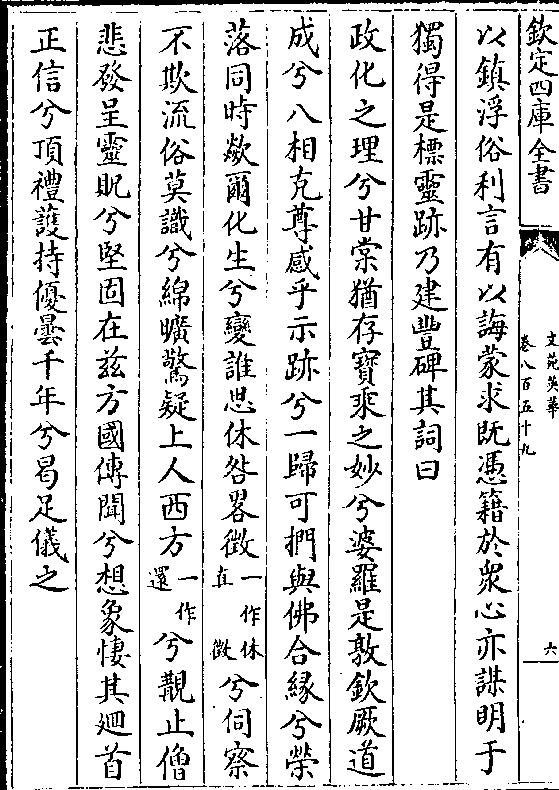 欽定四庫全書
文苑英華
卷八百五十九
六
以鎮浮俗利言有以誨蒙求既憑籍於衆心亦謀明于
獨得是標靈跡乃建豐碑其詞曰
政化之理兮甘棠猶存寳乘之妙兮婆羅是敦欽厥道
成兮八相克尊感乎示跡兮一歸可捫與佛合緣兮榮
落同時歘爾化生兮變誰思休咎畧徵一作休徴直兮伺察
不欺流俗莫識兮綿曠驚疑上人西方一作還兮覩止僧
悲發呈靈貺兮堅固在兹方國傳聞兮想象悽其廻首
正信兮頂禮護持優曇千年兮曷足儀之